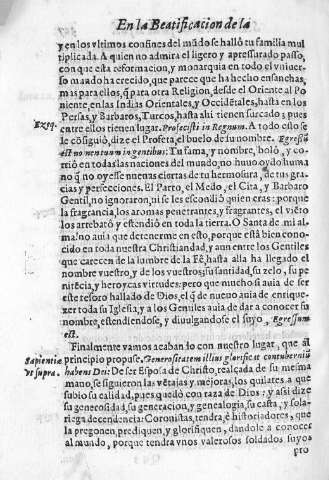 En la Beatificacion de la
y en los vltimos confines del mũdo se halló tu familia mul
tiplicada. A quien no admira el ligero y apressurado passo,
con que esta reformacion, y monarquia en todo el vniuer
so mundo ha crecido, que parece que ha hecho ensanchas,
mas para ellos, q̃ para otra Religion, desde el Oriente al Po
niente, en las Indias Orientales, y Occidẽtales, hasta en los
Persas, y Barbaros, Turcos, hasta ahi tienen surcado; pues
Ezeq. entre ellos tienen lugar. Profecisti in Regnum. A todo esso se
le cõsiguió, dize el Profeta, el buelo de tu nombre. Egressũ
est nomen tuum in gentibus: Tu fama, y nombre, boló, y cor
rió en todas las naciones del mundo, no huuo oydo huma
no q̃ no oyesse nueuas ciertas de tu hermosura, de tus gra
cias y perfecciones. El Parto, el Medo, el Cita, y Barbaro
Gentil, no ignoraron, ni se les escondió quien eras: porque
la fragrancia, los aromas penetrantes, y fragrantes, el viẽto
los arrebató y estendió en toda la tierra. O Santa de mi al-
ma! no auia que detenerme en esto, porque está bien cono-
cido en toda nuestra Christiandad, y aun entre los Gentiles
que carecen de la lumbre de la Fé, hasta alla ha llegado el
nombre vuestro, y de los vuestros; su santidad, su zelo, su pe
nitẽcia, y heroycas virtudes: pero que mucho si auia de ser
este tesoro hallado de Dios, el q̃ de nueuo auia de enrique-
zer toda su Iglesia, y a los Gentiles auia de dar a conocer su
nombre, estendiendose, y diuulgandose el suyo, Egressum
est.
Finalmente vamos acabando con nuestro lugar, que al
Sapientiæ principio propuse, Generositatem illius glorificat contuberniũ
vt supra. habens Dei: De ser Esposa de Christo, realçada de su mesma
mano, se siguieron las vẽtajas y mejoras, los quilates a que
subio su calidad, pues quedó con raza de Dios: y assi dize
su generosidad, su generacion, y genealogia, su casta, y sola-
riega decendencia: Coronistas, tendra, è historiadores, que
la pregonen, prediquen, y glorifiquen, dandole a conocer
al mundo, porque tendra vnos valerosos soldados suyos
pro